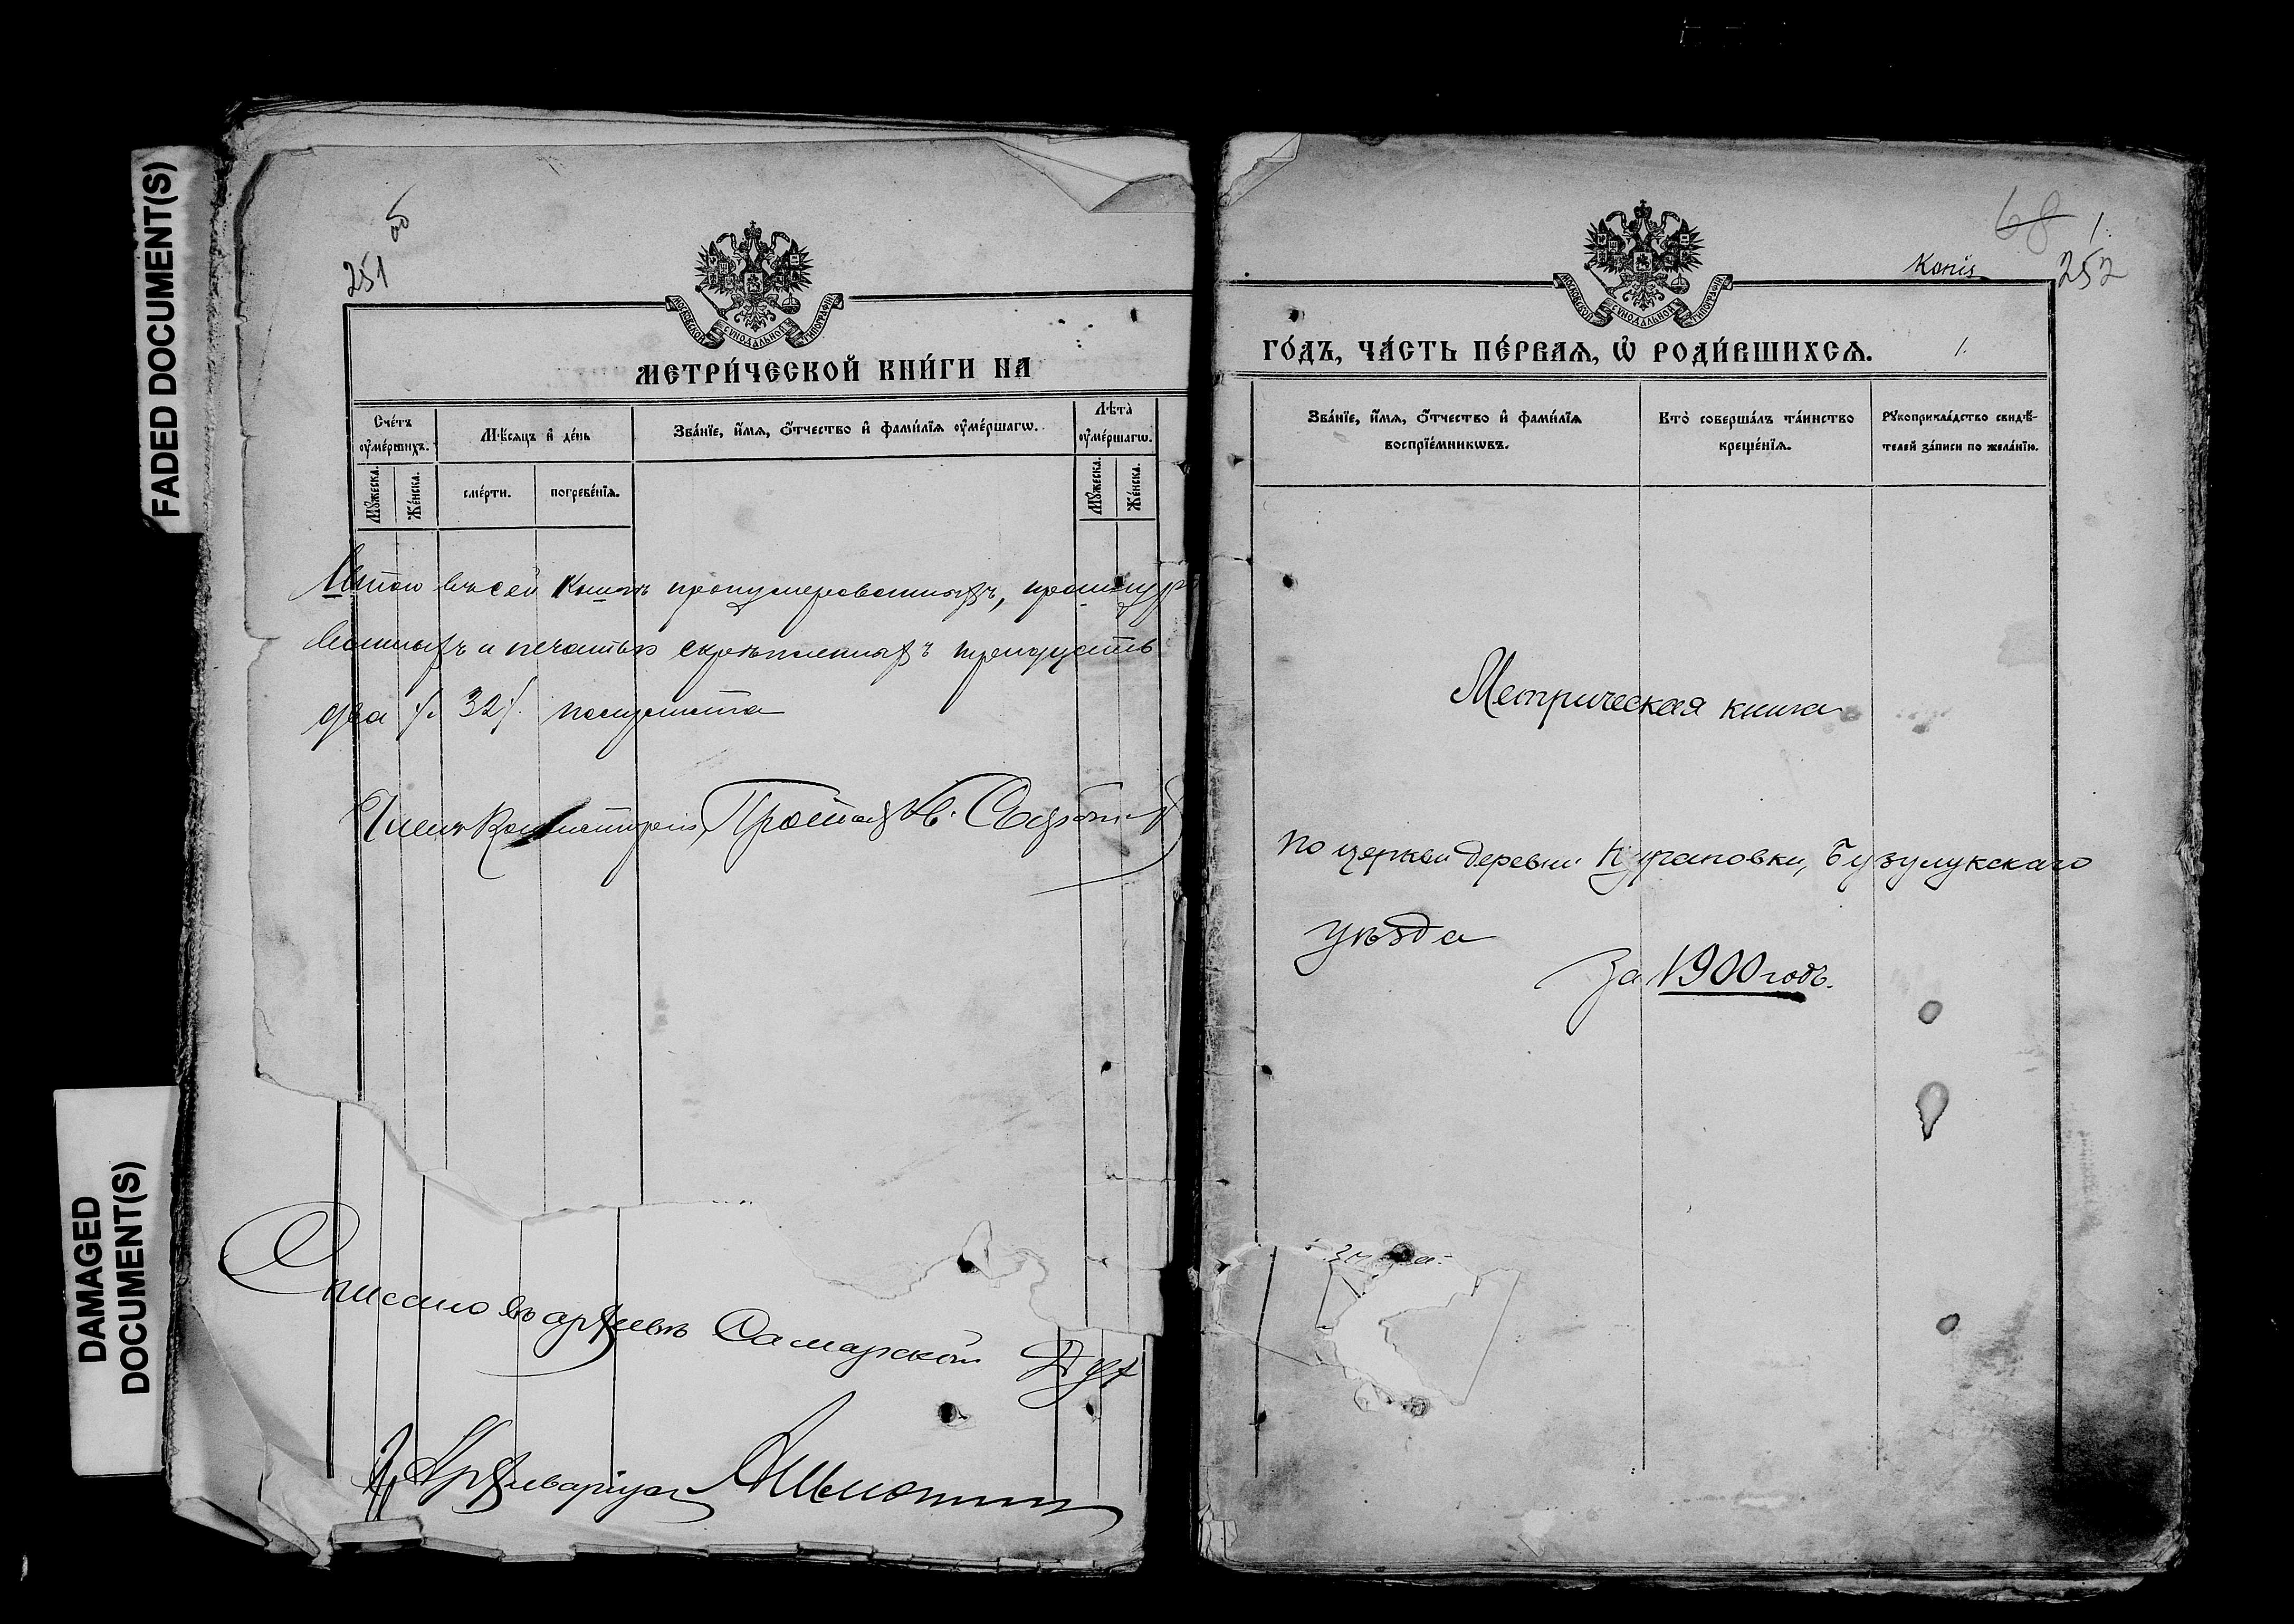 FADED DOCUMENT(S)
DAMAGED
DOCUMENT(S)
251
об
МОСКОВСКОЙ СѴНОДАЛЬНОЙ ТИПОГРАФІИ
МЕТРИ́ЧЕСКОЙ КНИ́ГИ НА
Сче́тъ
ѹ҆ме́ршихъ.
Мѣ́сяцъ и҆ де́нь
Зва́нїе, и҆́мѧ, ѻ҆́тчество и҆ фами́лїѧ ѹ҆ме́ршагѡ.
Лѣ́та̀
ѹ҆ме́ршагѡ.
Мꙋ́жеска.
Же́нска.
сме́рти.
погребе́нїѧ.
Мꙋ́жеска.
Же́нска.
Итого въ сей книгѣ пронумерованныхъ, прошнуро
ванныхъ и печатью скрѣпленныхъ тридцать
два /. 32 /. полулиста
Членъ Консисторіи, Протоіер.
Описано въ архивѣ Самарской Дух
Архиваріусъ
68
1.
Копія
252
МОСКОВСКОЙ СѴНОДАЛЬНОЙ ТИПОГРАФІИ
ГО́ДЪ, ЧА́СТЬ ПЕ́РВАѦ, Ѡ҆ РОДИ́ВШИХСѦ. 1.
Зва́нїе, и҆́мѧ, ѻ҆́тчество и҆ фами́лїѧ
воспрїе́мникѡвъ.
Кто̀ соверша́лъ та́инство
креще́нїѧ.
Рꙋкоприкла́дство свидѣ́-
телей за́писи по жела́нїю.
Метрическая книга
по церкви деревни Кураповки, Бузулукскаго
уѣзда
За 1900 годъ.